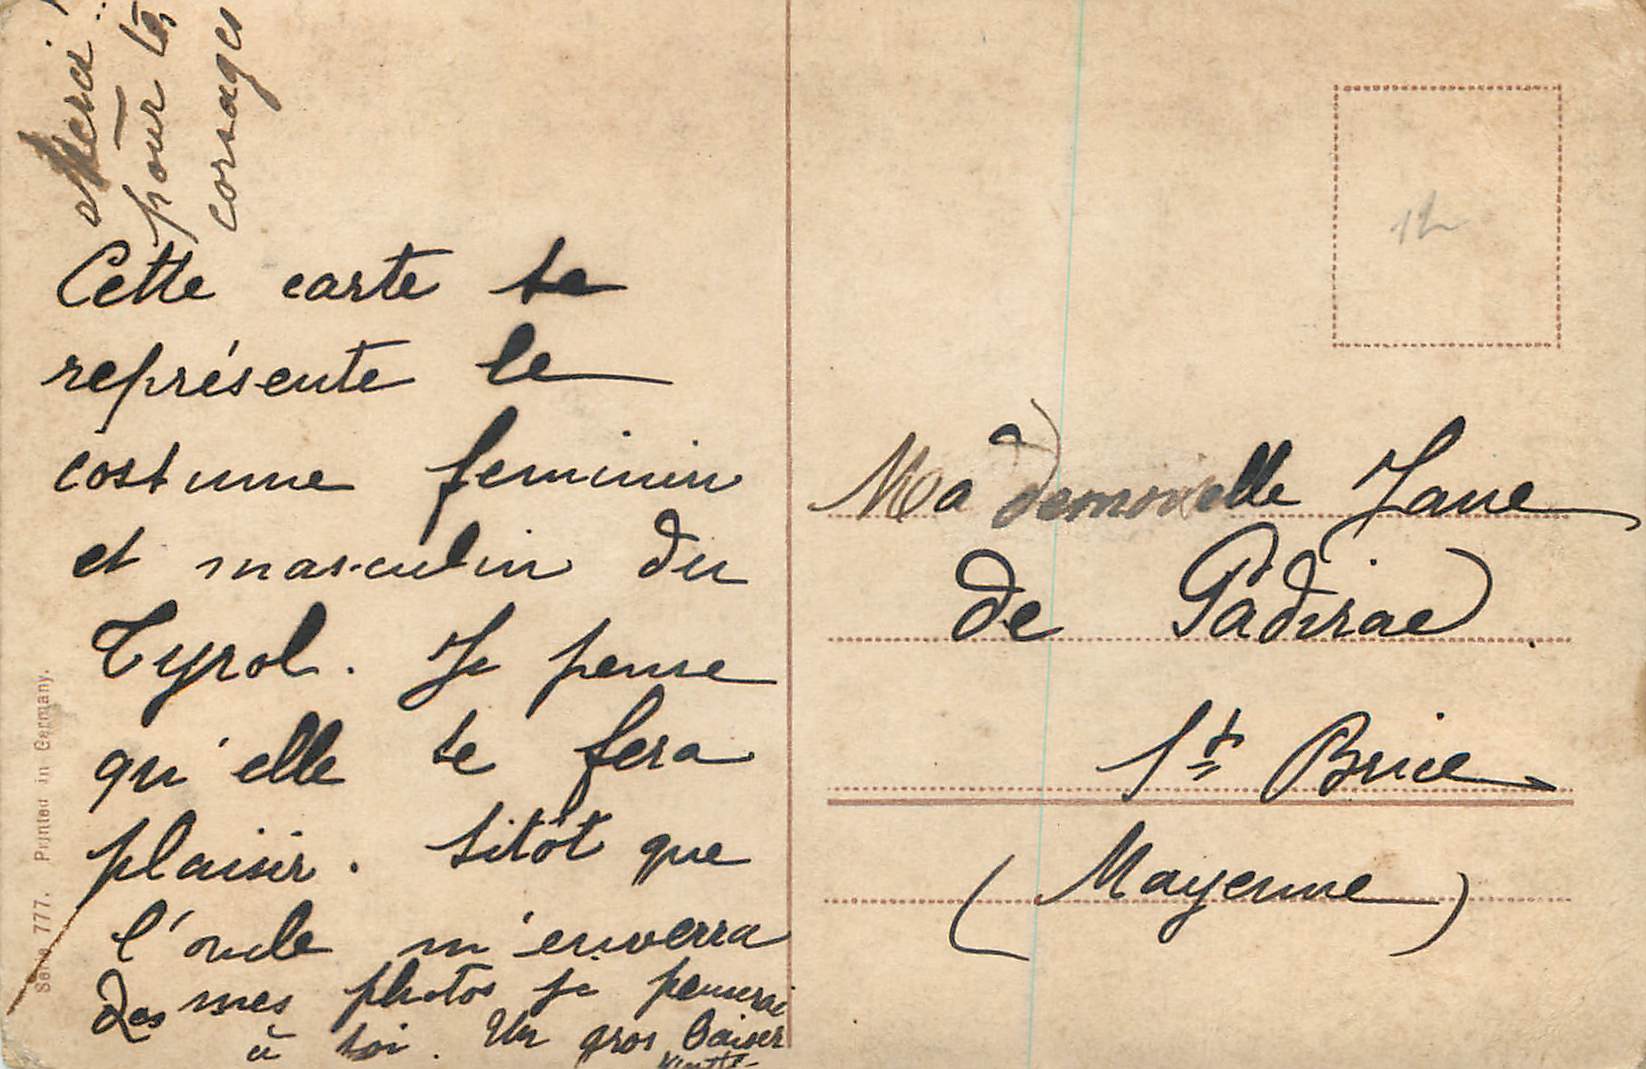 Merci
pour les
corsages
Cette carte te
représente le
costume feminin
et masculin du
Tyrol. Je pense
qu'elle te fera
plaisir. Sitôt que
l'oncle m'enverra
des mes photos je penserai
à toi. Un gros baiser
Mademoiselle Jane
de Padirac
St Brice
(Mayenne)
Serie 777. Printed in Germany.
12